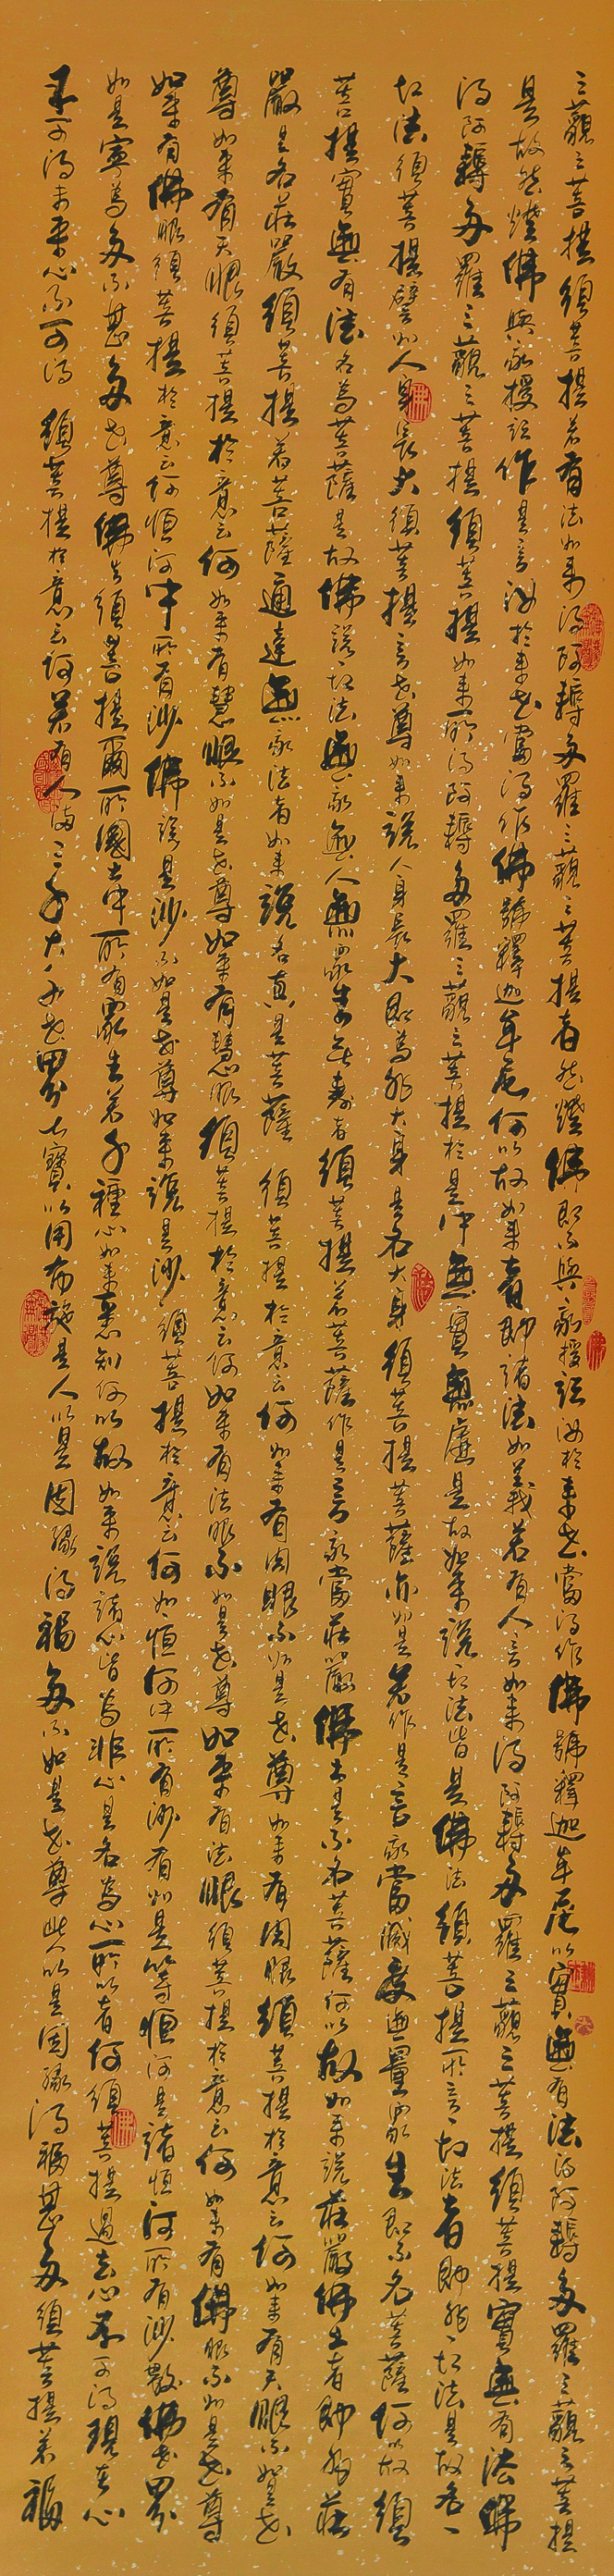 三藐三菩提須菩提若有法如來得阿耨多羅三藐三菩提者然燈佛即不與我授記汝於來世當得作佛號釋迦牟尼以實無有法得阿耨多羅三藐三菩提
是故然燈佛與我授記作是言汝於來世當得作佛號釋迦牟尼何以故如來者即諸法如義若有人言如來得阿耨多羅三藐三菩提須菩提實無有法佛
得阿耨多羅三藐三菩提須菩提如來所得阿耨多羅三藐三菩提於是中無實無虛是故如來說一切法皆是佛法須菩提所言一切法者即非一切法是故名一
切法須菩提譬如人身長大須菩提言世尊如來說人身長大即為非大身是名大身須菩提菩薩亦如是若作是言我當滅度無量眾生即不名菩薩何以故須
菩提實無有法名為菩薩是故佛說一切法無我無人無眾生無壽者須菩提若菩薩作是言我當莊嚴佛土是不名菩薩何以故如來說莊嚴佛土者即非莊
嚴是名莊嚴須菩提若菩薩通達無我法者如來說名真是菩薩 須菩提於意云何如來有肉眼不如是世尊如來有肉眼須菩提於意云何如來有天眼不如是世
尊如來有天眼須菩提於意云何如來有慧眼不如是世尊如來有慧眼須菩提於意云何如來有法眼不如是世尊如來有法眼須菩提於意云何如來有佛眼不如是世尊
如來有佛眼須菩提於意云何恒河中所有沙佛說是沙不如是世尊如來說是沙須菩提於意云何如一恒河中所有沙有如是等恒河是諸恒河所有沙數佛世界
如是寧為多不甚多世尊佛告須菩提爾所國土中所有眾生若干種心如來悉知何以故如來說諸心皆為非心是名為心所以者何須菩提過去心不可得現在心
不可得未來心不可得 須菩提於意云何若有人滿三千大千世界七寶以用布施是人以是因緣得福多不如是世尊此人以是因緣得福甚多須菩提若福